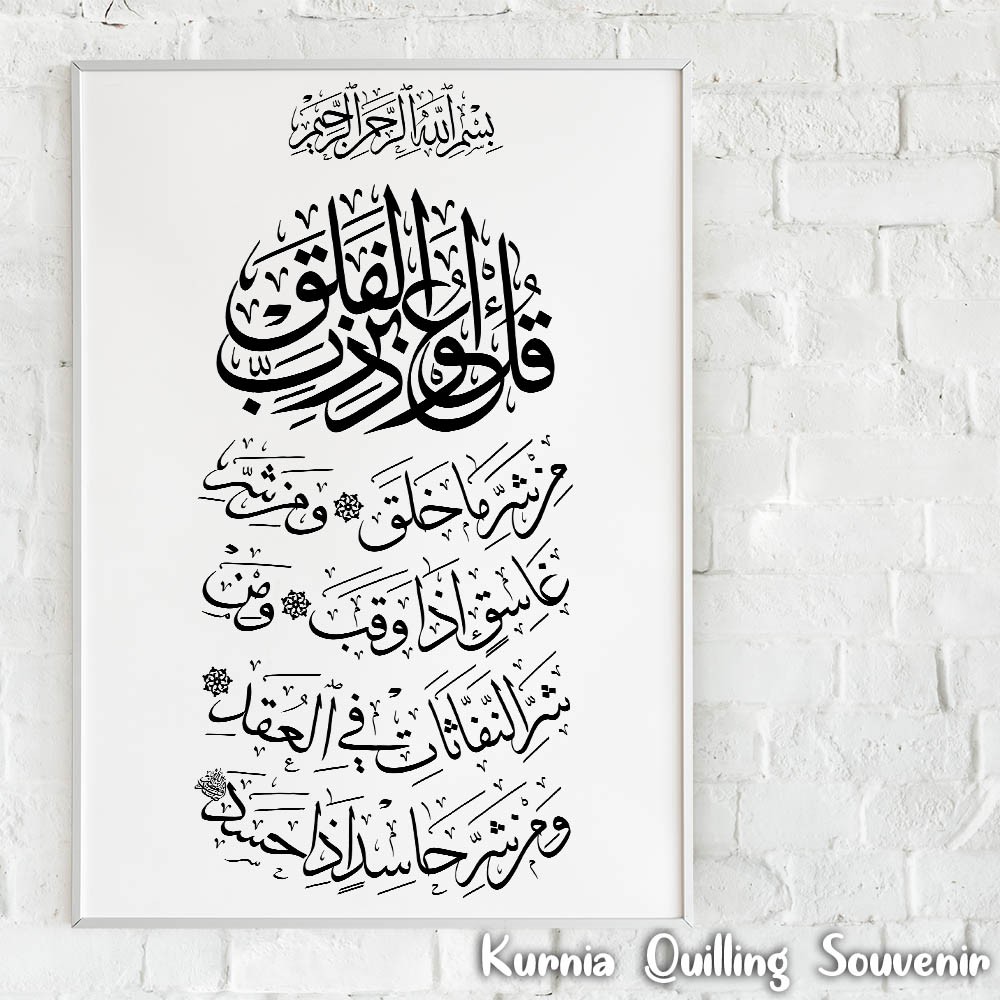 بِسْمِ اللَّهِ الرَّحْمَنِ الرَّحِيمِ
قُلْ أَعُوذُ بِرَبِّ الْفَلَقِ
مِن شَرِّ مَا خَلَقَ وَمِن شَرِّ
غَاسِقٍ إِذَا وَقَبَ وَمِنْ
شَرِّ النَّفَّاثَاتِ فِي الْعُقَدِ
وَمِن شَرِّ حَاسِدٍ إِذَا حَسَدَ
Kurnia Quilling Souvenir